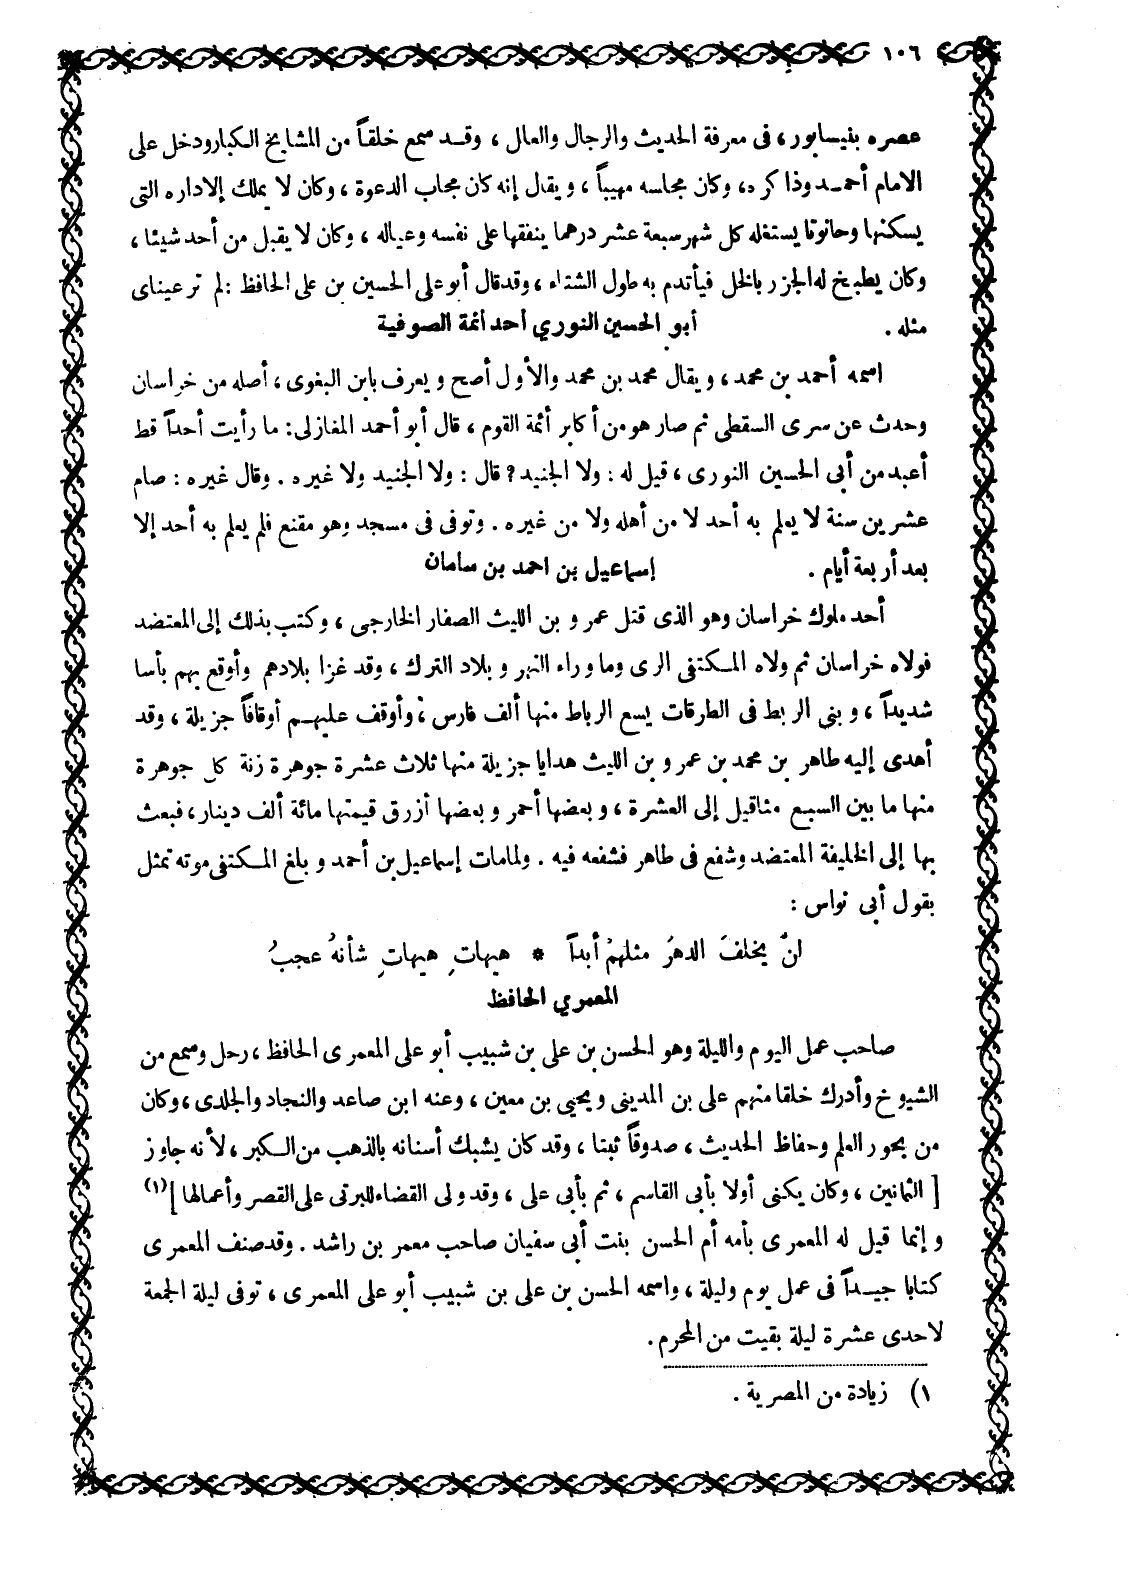 ١٠٦
عصره بنيسابور، فى معرفة الحديث والرجال والعال ، وقد سمع خلقاً من المشايخ الكبار ودخل على
الامام أحمد وذا كره، وكان مجلسه مهيباً ، ويقال إنه كان مجاب الدعوة ، وكان لا يملك إلا داره التى
يسكنها وحانوتا يستغله كل شهر سبعة عشر درهما ينفقها على نفسه وعياله ، وكان لا يقبل من أحد شيئا ،
وكان يطبخ له الجزر بالخل فيأتدم به طول الشتاء ، وقد قال أبو على الحسين بن على الحافظ : لم تر عيناى
مثله .
أبو الحسين النوري أحد أئمة الصوفية
اسمه أحمد بن محمد ، ويقال محمد بن محمد والأول أصح ويعرف بابن البغوى ، أصله من خراسان
وحدث عن سرى السقطى ثم صار هو من أكابر أئمة القوم ، قال أبو أحمد المغازلى : ما رأيت أحداً قط
أعبد من أبى الحسين النورى ، قيل له : ولا الجنيد ? قال : ولا الجنيد ولا غيره . وقال غيره : صام
عشرين سنة لا يعلم به أحد لا من أهله ولا من غيره . وتوفى فى مسجد وهو مقنع فلم يعلم به أحد إلا
بعد أربعة أيام .
إسماعيل بن احمد بن سامان
أحد ملوك خراسان وهو الذى قتل عمرو بن الليث الصفار الخارجى ، وكتب بذلك إلى المعتضد
فولاه خراسان ثم ولاه المكتفى الرى وما وراء النهر وبلاد الترك ، وقد غزا بلادهم وأوقع بهم بأسا
شديداً ، وبنى الربط فى الطرقات يسع الرباط منها ألف فارس ، وأوقف عليهم أوقافاً جزيلة ، وقد
أهدى إليه طاهر بن محمد بن عمرو بن الليث هدايا جزيلة منها ثلاث عشرة جوهرة زنة كل جوهرة
منها ما بين السبع مثاقيل إلى العشرة ، وبعضها أحمر وبعضها أزرق قيمتها مائة ألف دينار ، فبعث
بها إلى الخليفة المعتضد وشفع فى طاهر فشفعه فيه . ولما مات إسماعيل بن أحمد وبلغ المكتفى موته تمثل
بقول أبى نواس :
لنْ يخلفَ الدهرُ مثلهمْ أبداً * هيهاتِ هيهاتِ شأنهُ عجبُ
المعمري الحافظ
صاحب عمل اليوم والليلة وهو الحسن بن على بن شبيب أبو على المعمرى الحافظ ، رحل وسمع من
الشيوخ وأدرك خلقا منهم على بن المدينى ويحيى بن معين ، وعنه ابن صاعد والنجاد والجلدى ، وكان
من بحور العلم وحفاظ الحديث ، صدوقاً ثبتا ، وقد كان يشبك أسنانه بالذهب من الكبر ، لأنه جاوز
[ الثمانين ، وكان يكنى أولا بأبى القاسم ، ثم بأبى على ، وقد ولى القضاء للبرتى على القصر وأعمالها ](١)
وإنما قيل له المعمرى بأمه أم الحسن بنت أبى سفيان صاحب معمر بن راشد . وقد صنف المعمرى
كتابا جيداً فى عمل يوم وليلة ، واسمه الحسن بن على بن شبيب أبو على المعمرى ، توفى ليلة الجمعة
لاحدى عشرة ليلة بقيت من المحرم .
١) زيادة من المصرية .